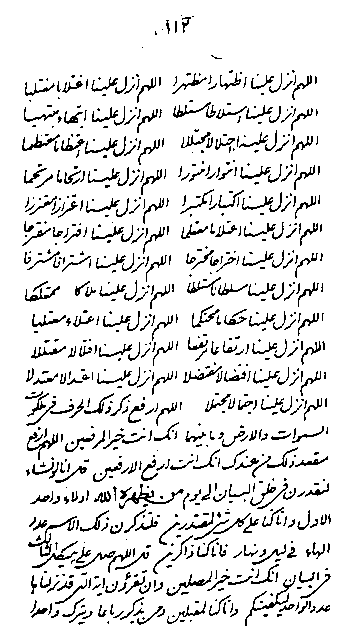 ١١٣
اللهم انزل علينا اظتهارا مظتهرا اللهم انزل علينا اغتلابا مغتلبا
اللهم انزل علينا استلاطا مستلطا اللهم انزل علينا ابتهاء مبتهيا
اللهم انزل علينا اجتلالا مجتللا اللهم انزل علينا اعتظاما معتظما
اللهم انزل علينا انتوارا منتورا اللهم انزل علينا ارتحاما مرتحما
اللهم انزل علينا اكتبارا مكتبرا اللهم انزل علينا اعتزازا معتززا
اللهم انزل علينا اعتلاما معتلما اللهم انزل علينا افتراحا مفترحا
اللهم انزل علينا اختراجا مخترجا اللهم انزل علينا اشترافا مشترفا
اللهم انزل علينا سلطانا مستلطا اللهم انزل علينا ملاكا ممتلكا
اللهم انزل علينا حكاما محتكما اللهم انزل علينا اعتلاء معتليا
اللهم انزل علينا ارتفاعا مرتفعا اللهم انزل علينا اقتتالا مقتتلا
اللهم انزل علينا افتضالا مفتضلا اللهم انزل علينا اعتدالا معتدلا
اللهم انزل علينا احتمالا محتملا اللهم ارفع ذكر ذلك الحرف فى ملكوت
السموات والارض وما بينهما انك انت خير المرفعين اللهم ارفع
مقعد ذلك من عندك انك انت ارفع الارفعين قل انا لانشاء
لنقدرن فى خلق البيان الى يوم من يظهره الله ادلاء واحد
الاول وانا كنا على كل شئ لمقتدرين فلتذكرن ذلك الاسم عدد
الهاء فى ليل ونهار فانا كنا ذاكرين قل اللهم صل على هيكل الثالث
فى البيان انك انت خير المصلين وان تقرؤن ايه التى قد نزلنا بها
عدد الواحد ليكفينكم وانا كنا لمقبلين ومن يذكر ربا عما ويترك واحدا